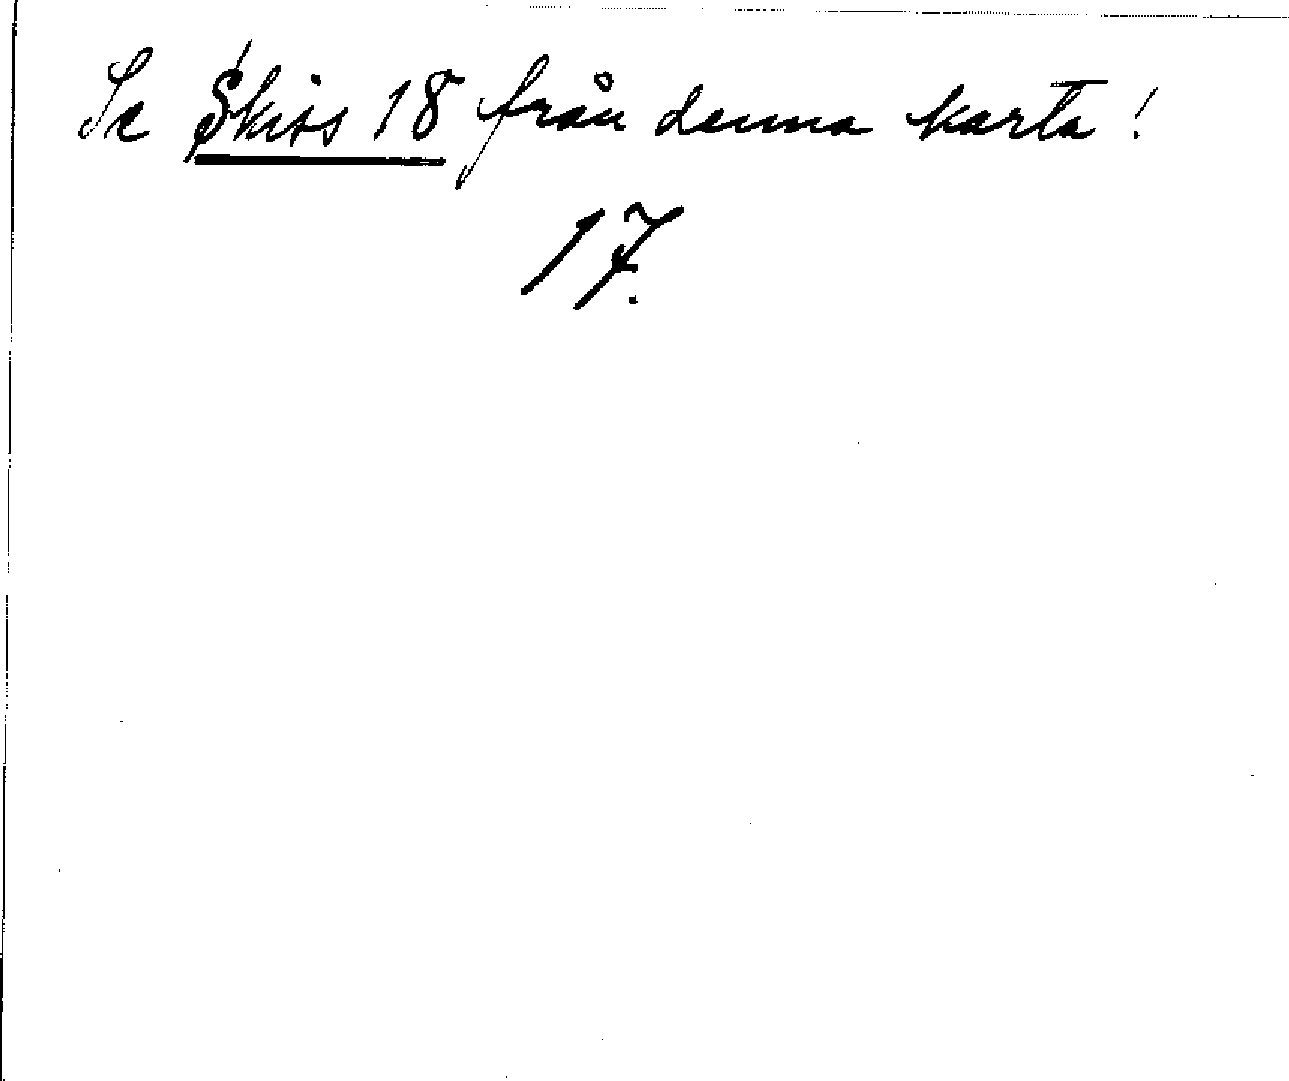 Se Skiss 18 från denna karta!
17.